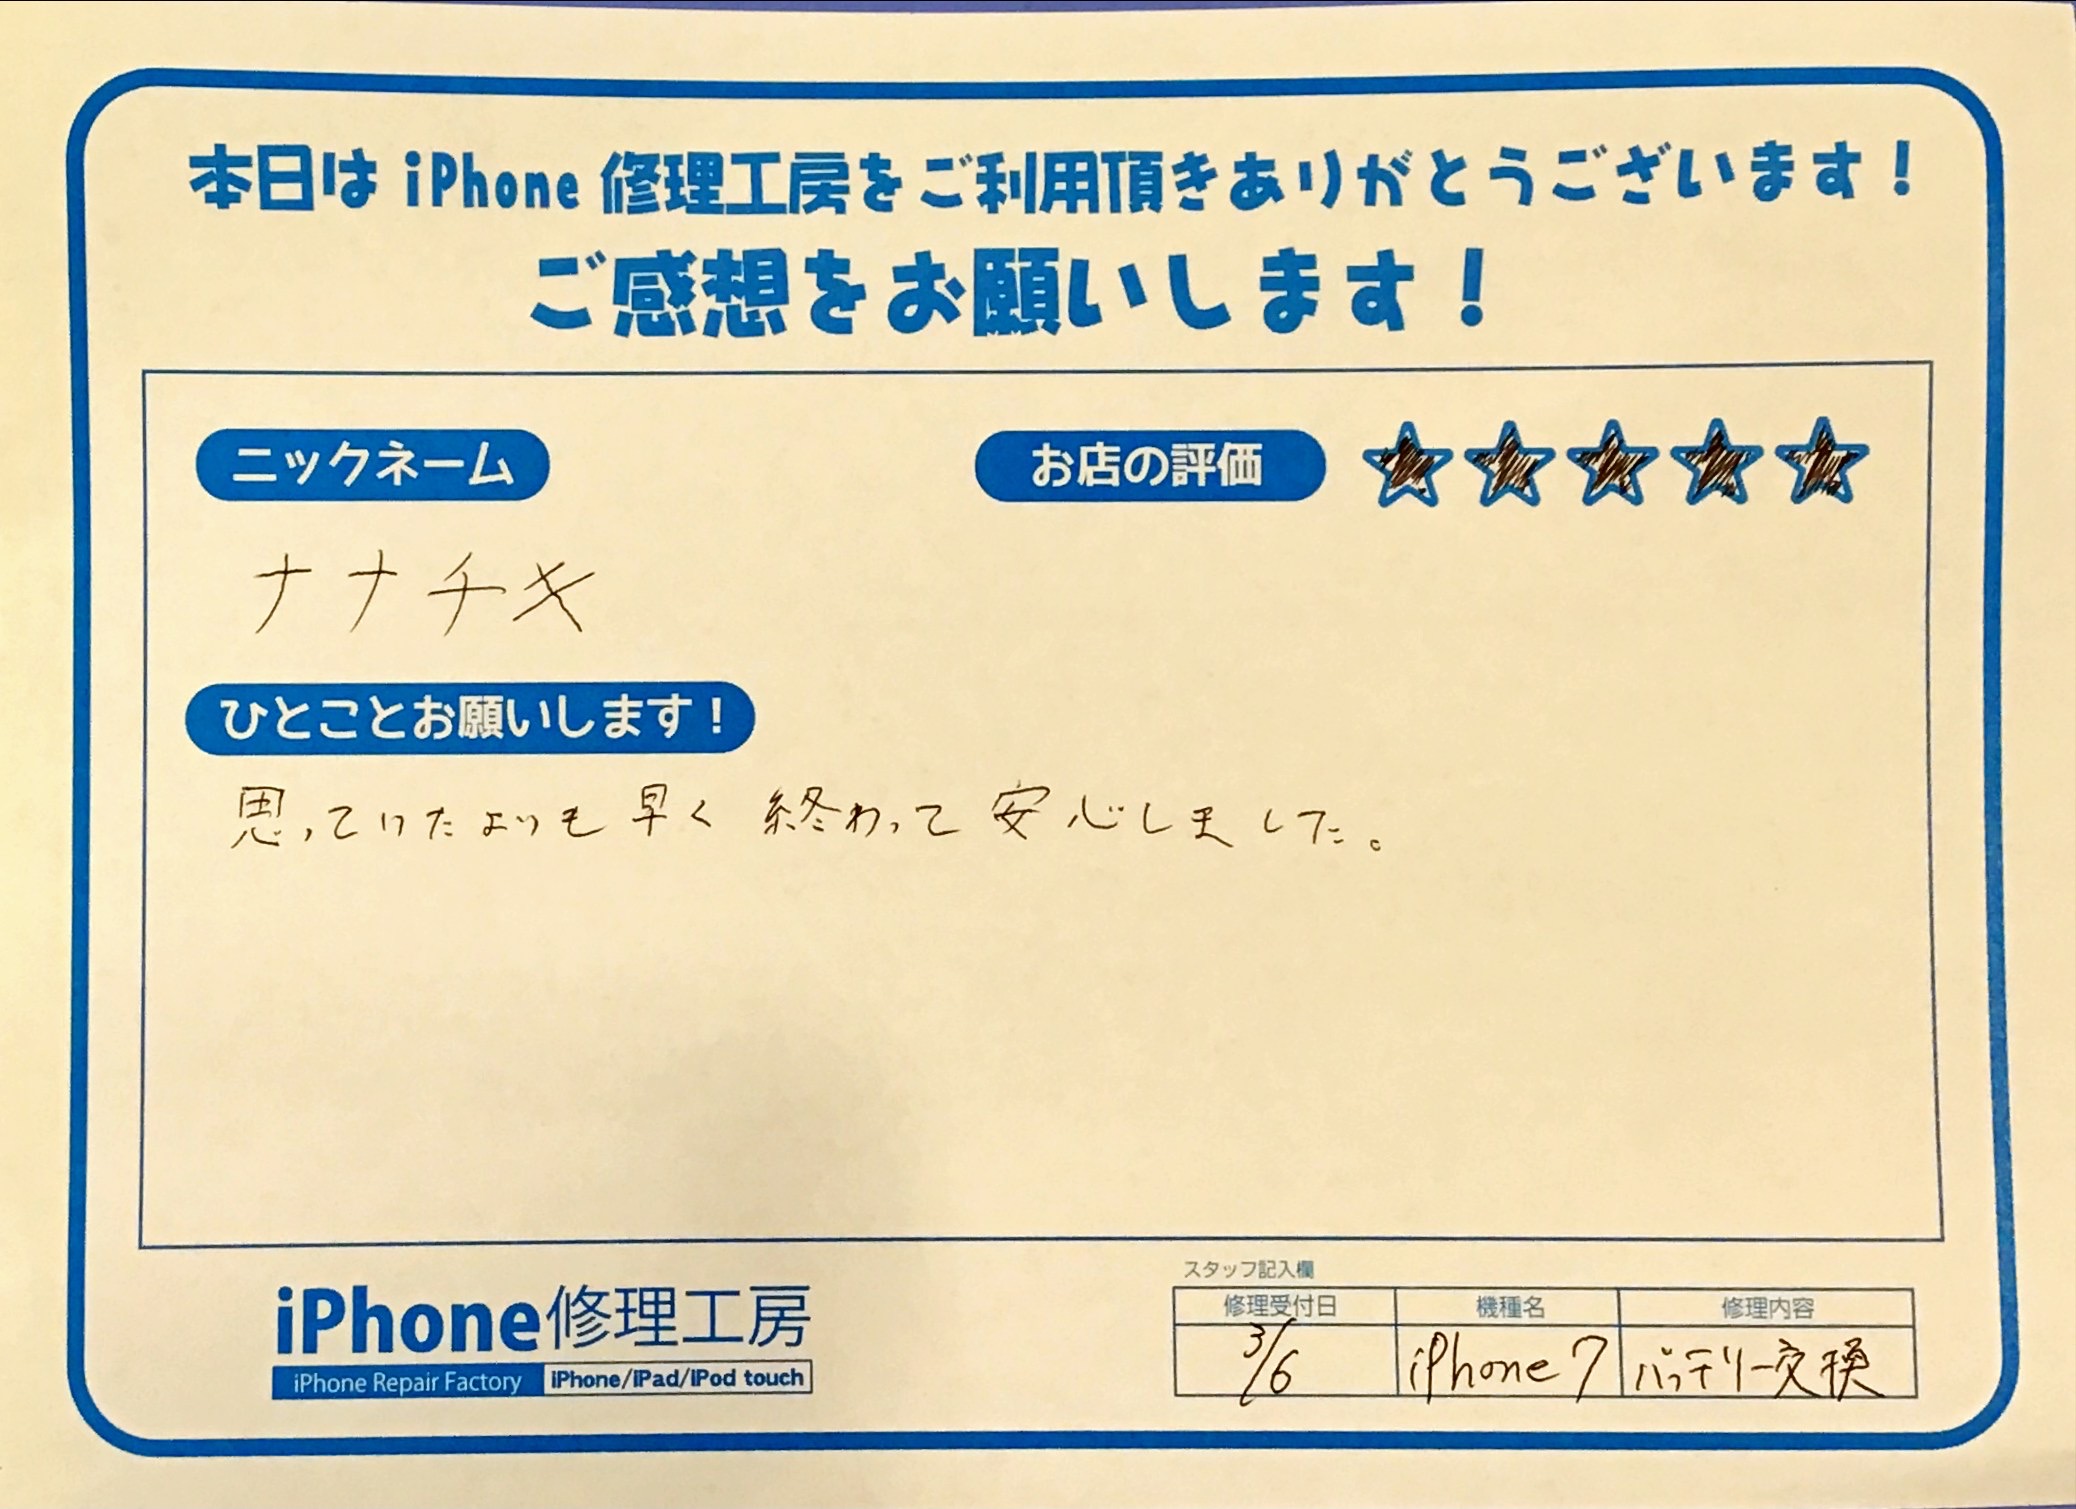 本日は iPhone 修理工房をご利用頂きありがとうございます！
ご感想をお願いします！
ニックネーム
お店の評価
ナナチキ
ひとことお願いします！
思っていたよりも早く終わって安心しました。
iPhone修理工房
iPhone Repair Factory
iPhone/iPad/iPod touch
スタッフ記入欄
修理受付日 機種名 修理内容
3/6 iPhone7 バッテリー交換